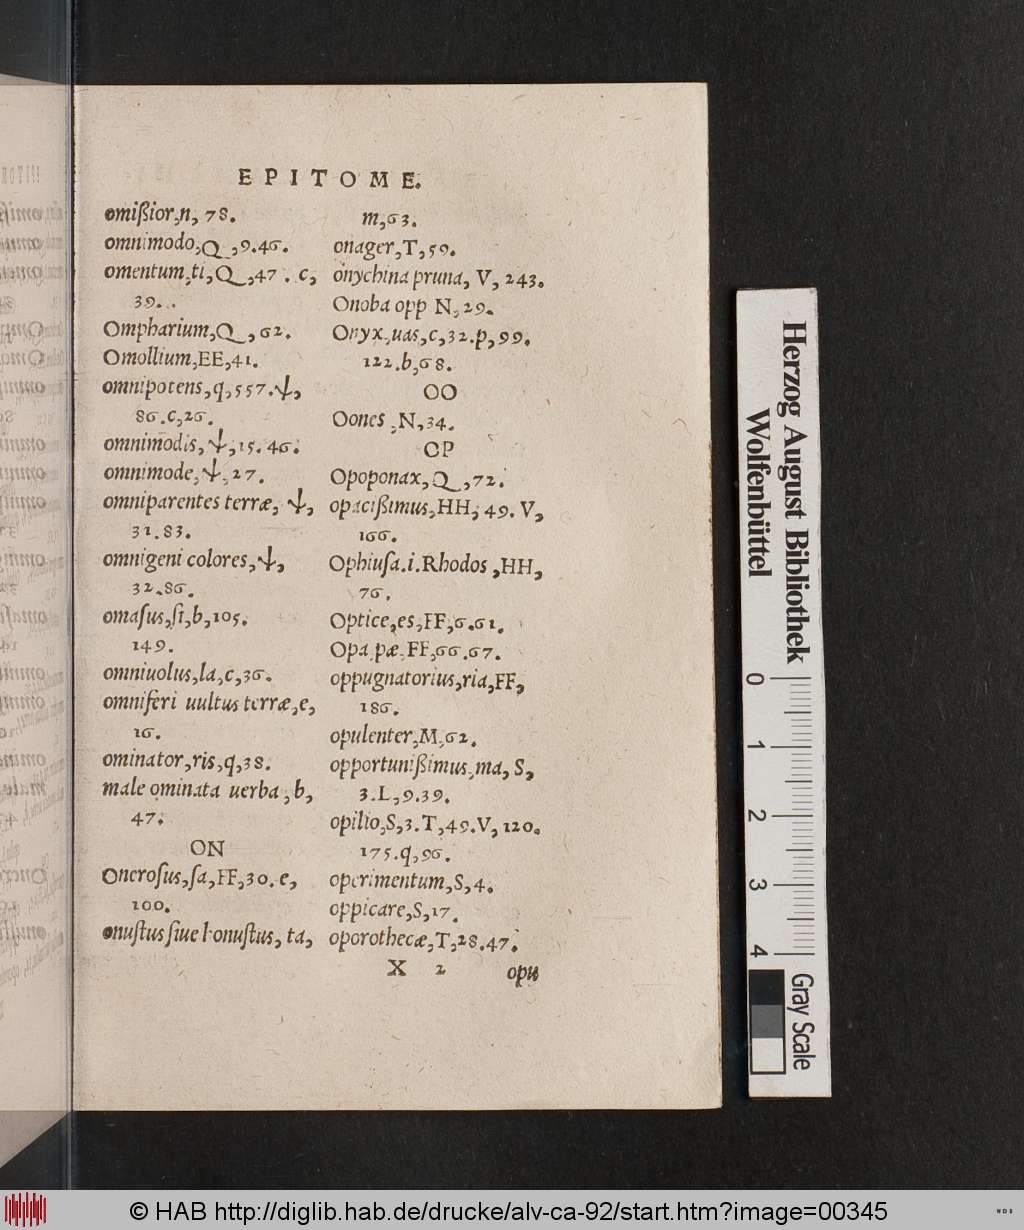 EPITOME.
omißior,n, 78.
omnimodo,Q,9.46.
omentum,ti,Q,47. c,
39.
Ompharium,Q,62.
Omollium,EE,41.
omnipotens,q,557.Ψ,
86.c,26.
omnimodis,Ψ,15.46.
omnimode,Ψ,27.
omniparentes terræ, Ψ,
31.83.
omnigeni colores,Ψ,
32.86.
omaſus,ſi,b,105.
149.
omniuolus,la,c,36.
omniferi uultus terræ,e,
16.
ominator,ris,q,38.
male ominata uerba,b,
47.
ON
Oneroſus,ſa,FF,30.e,
100.
onuſtus ſiue honuſtus, ta,
m,63.
onager,T,59.
onychina pruna, V, 243.
Onoba opp N,29.
Onyx,uas,c,32.p,99.
122.b,68.
OO
Oones,N,34.
OP
Opoponax,Q,72.
opacißimus,HH,49.V,
166.
Ophiuſa.i.Rhodos,HH,
76.
Optice,es,FF,6.61.
Opa,pæ,FF,66.67.
oppugnatorius,ria,FF,
186.
opulenter,M,62.
opportunißimus,ma, S,
3.L,9.39.
opilio,S,3.T,49.V,120.
175.q,96.
operimentum,S,4.
oppicare,S,17.
oporothecæ,T,28.47.
X 2 opu
Herzog August Bibliothek
Wolfenbüttel
0 1 2 3 4
Gray Scale
© HAB http://diglib.hab.de/drucke/alv-ca-92/start.htm?image=00345
WDB